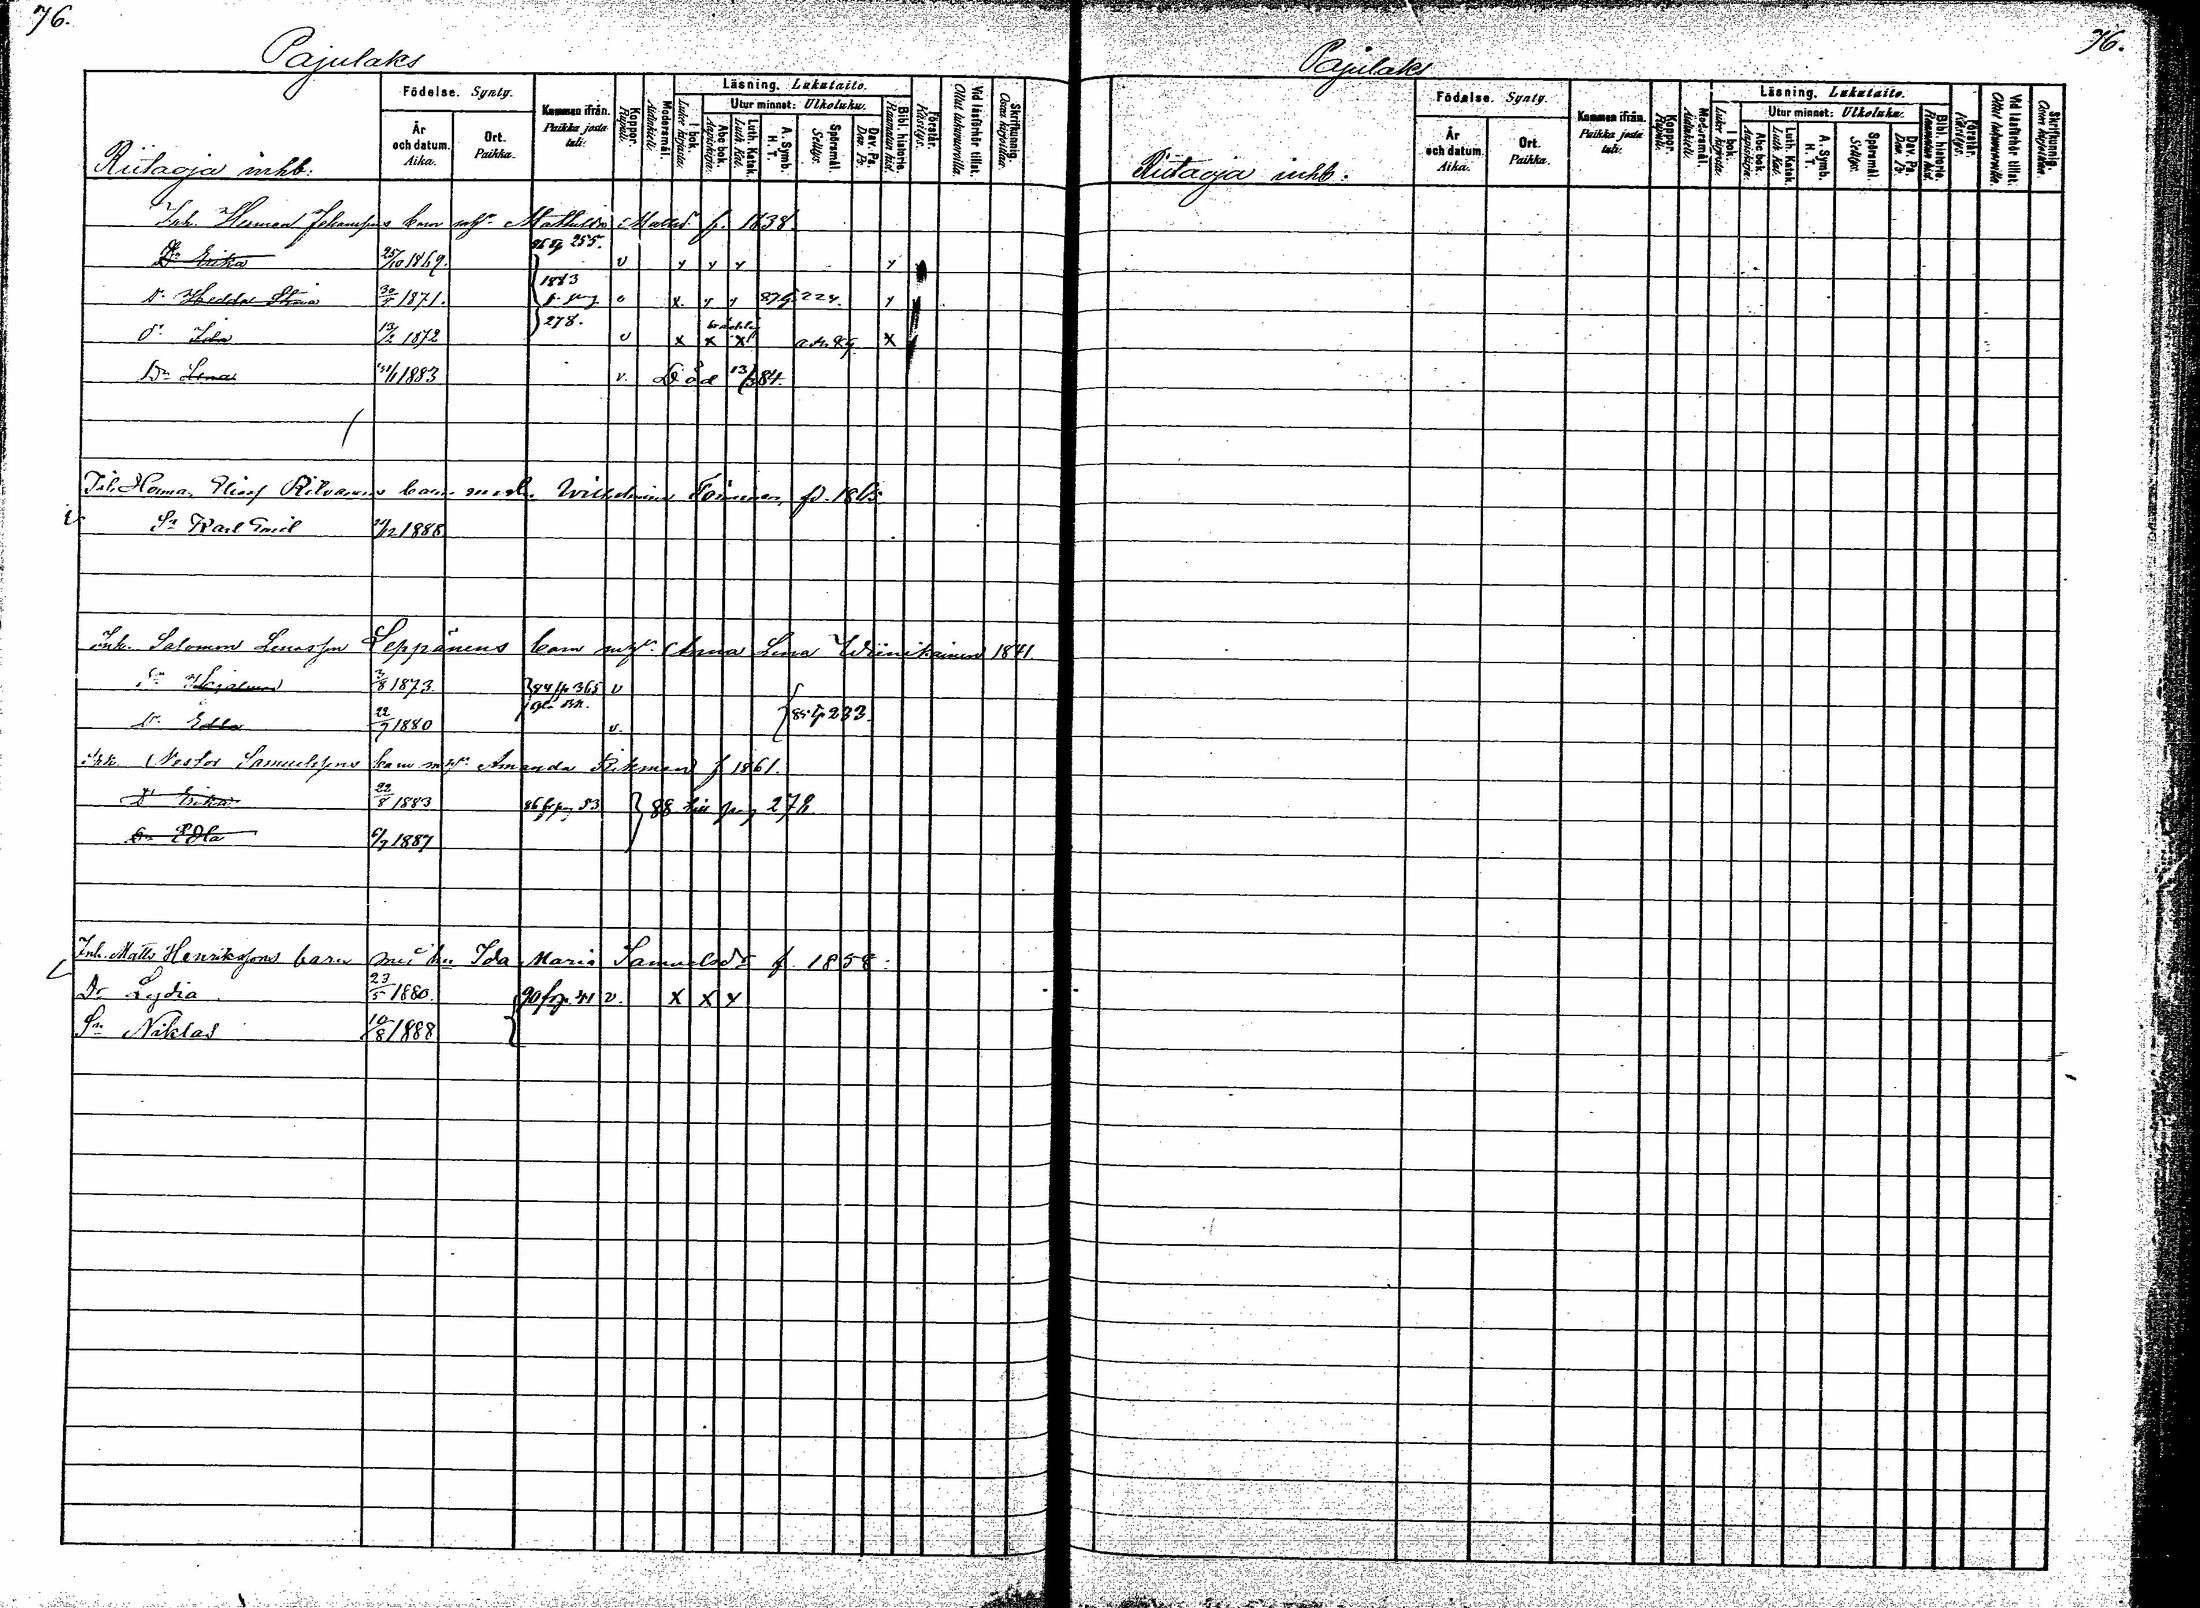 76.
Pajulaks
Födelse. Synty.
År och datum. Aika.
Ort. Paikka.
Kommen ifrån. Paikka josta tuli.
Koppor. Rupuli.
Modersmål. Äidinkieli.
Läsning. Lukutaito.
I bok. Luku kirjasta.
Utur minnet: Ulkoluku.
Abc bok. Aapiskirja.
Luth. Katek. Luth. Kat.
A. Symb. H. T.
Spörsmål. Selitys.
Dav. Ps. Dav. Ps.
Bibl. historie. Raamatun hist.
Förstår. Käsitys.
Vid läsförhör tillst. Ollut lukuvuorilla.
Skrifkunnig. Osaa kirjoittaa.
Riitaoja inhb.
Inh. Herman Johanssons barn m. h. Mathilda Mattsd. f. 1838.
Dr Erika 25/10 1869. v x x x x
255.
Dr Hedda Stina 30/5 1871. 1883 x x x 224. x
278.
Dr Ida 13/2 1872 v x x x x
Dr Lena 1883 v. Död 13/3 84.
barn med Wilhelmina
Sn Karl Emil /12 1888
Inh. Salomon Leppänens barn m. h. Anna Lena Wiinikainen 1841
Sn Hjalmar /8 1873. 84 fr 365 v
Dr Edla 22/7 1880 v. 85 t p 233.
Inh. Nestor Samuelssons barn m. h. Amanda f 1861.
Dr Erika 22/8 1883 86 fr pag 53 88 till pag 278
Dr Edla 6/7 1887
Inh. Matts Henrikssons barn med hu Ida Maria Samuelsdr f. 1858.
Dr Lydia 23/5 1880. 90 fr p. 41 v. x x x
Sn Niklas 10/8 1888
76.
Pajulaks
Födelse. Synty.
År och datum. Aika.
Ort. Paikka.
Kommen ifrån. Paikka josta tuli.
Koppor. Rupuli.
Modersmål. Äidinkieli.
Läsning. Lukutaito.
I bok. Luku kirjasta.
Utur minnet: Ulkoluku.
Abc bok. Aapiskirja.
Luth. Katek. Luth. Kat.
A. Symb. H. T.
Spörsmål. Selitys.
Dav. Ps. Dav. Ps.
Bibl. historie. Raamatun hist.
Förstår. Käsitys.
Vid läsförhör tillst. Ollut lukuvuorilla.
Skrifkunnig. Osaa kirjoittaa.
Riitaoja inhb.